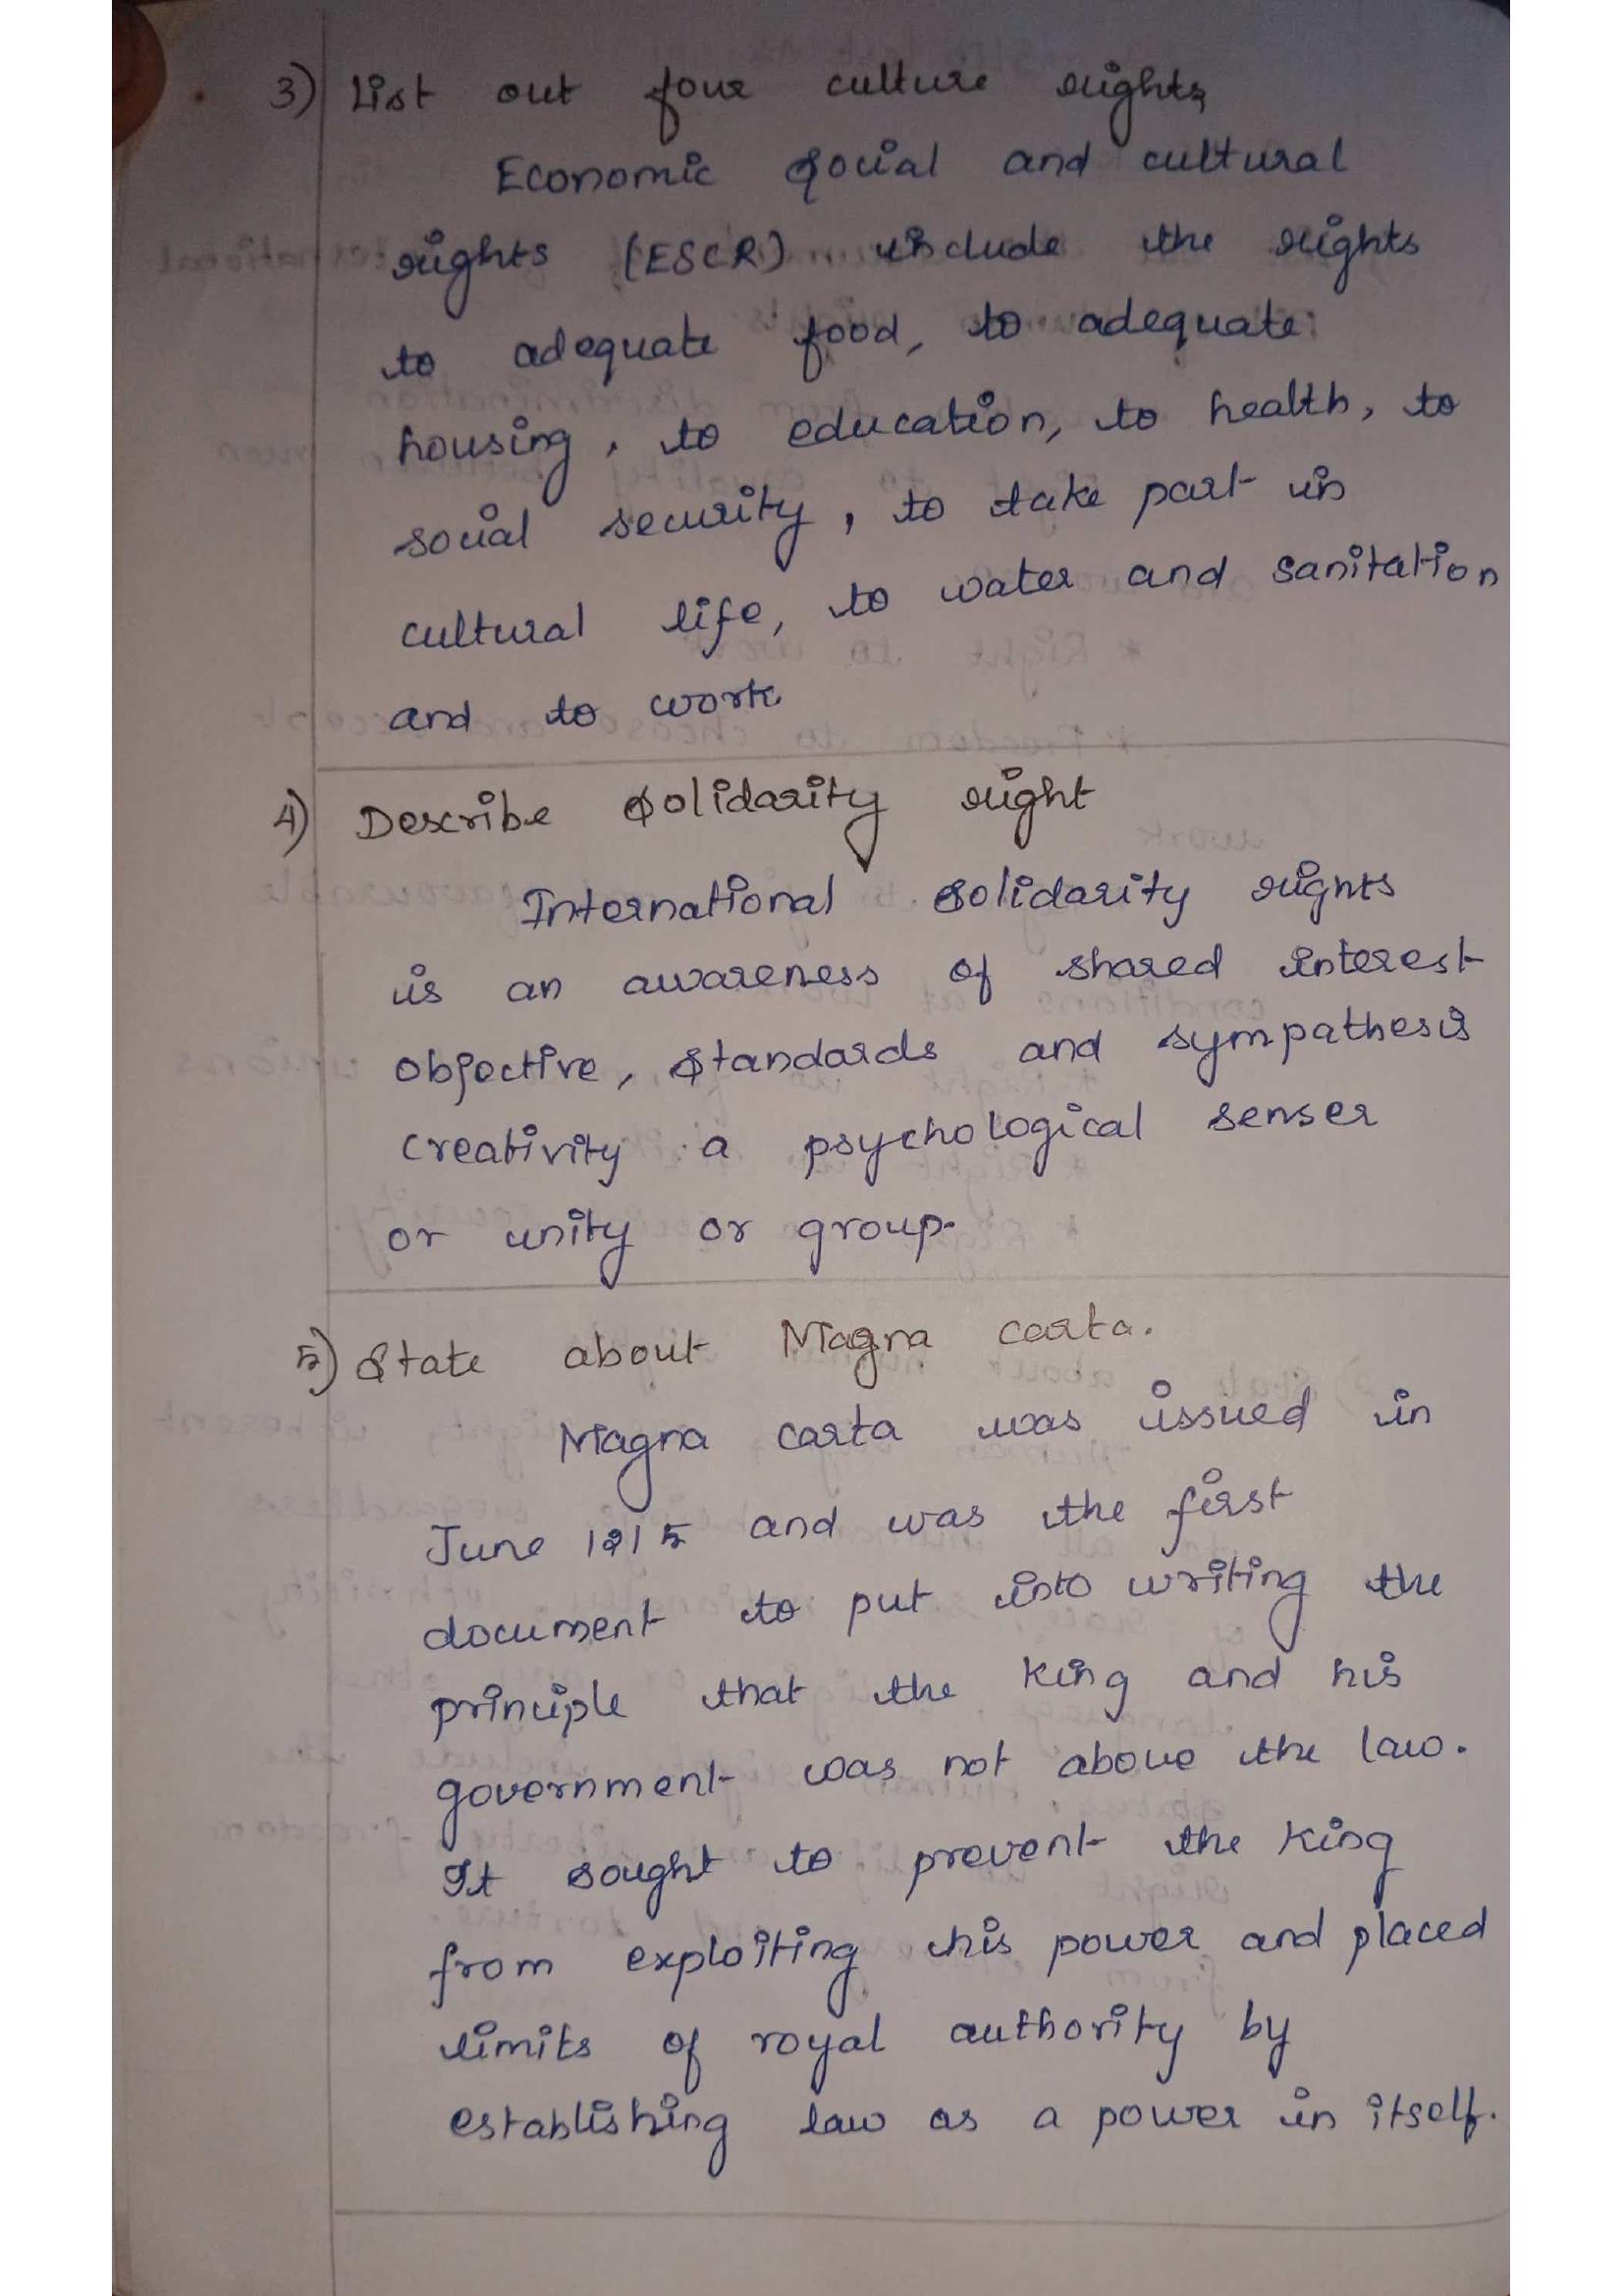 3) List out four culture rights
Economic Social and cultural
rights (ESCR) include the rights
to adequate food, to adequate
housing, to education, to health, to
social security, to take part in
cultural life, to water and sanitation
and to work
4) Describe Solidarity right
International Solidarity rights
is an awareness of shared interest
objective, Standards and sympathesis
creativity a psychological senser
or unity or group.
5) State about Magna carta.
Magna carta was issued in
June 1215 and was the first
document to put into writing the
principle that the king and his
government was not above the law.
It sought to prevent the king
from exploiting his power and placed
limits of royal authority by
establishing law as a power in itself.